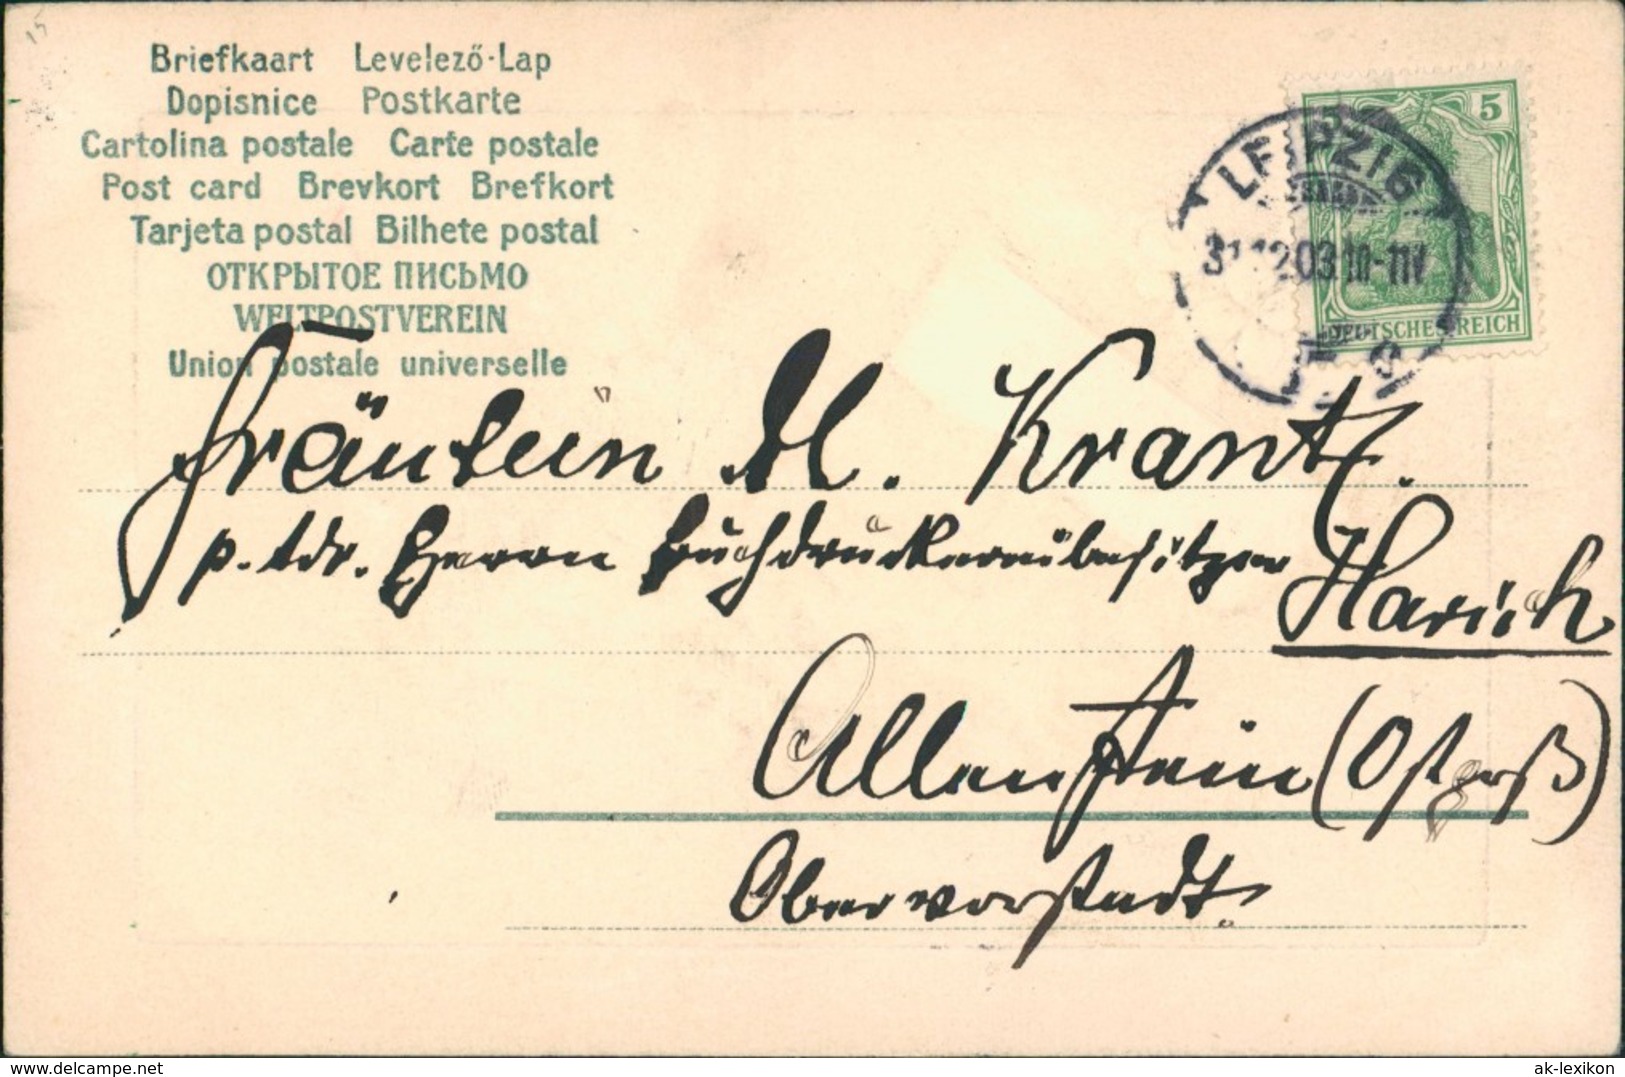 Briefkaart Levelező-Lap
Dopisnice Postkarte
Cartolina postale Carte postale
Post card Brevkort Brefkort
Tarjeta postal Bilhete postal
ОТКРЫТОЕ ПИСЬМО
WELTPOSTVEREIN
Union postale universelle
5 5
LEIPZIG
31.12.03.10-11V
DEUTSCHES REICH
Fräulein M. Krantz.
p. Adr. Herrn Buchdruckereibesitzer Harich
Allenstein (Ostprß)
Obervorstadt.
www.ak-ansichtskarten.de
ak-lexikon